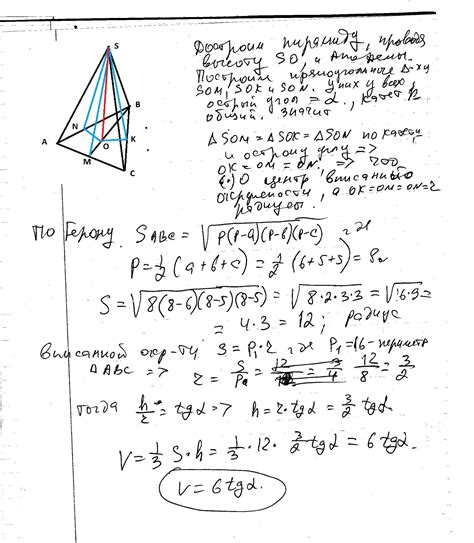 S
B
N
O
K
A
M
C
Достроим пирамиду, проводя
высоту SO и апофемы.
Построим прямоугольные Δ-ки
SOM, SOK и SON. У них у всех
острый угол = α, катет h
общий. Значит
ΔSOM = ΔSOK = ΔSON по катету
и острому углу =>
OK = OM = ON. => что
(·)O центр вписанной
окружности, а OK=OM=ON=r
радиусы.
По Герону. S ABC = √p(p-a)(p-b)(p-c), где
P = 1/2 (a+b+c) = 1/2 (6+5+5) = 8
S = √8(8-6)(8-5)(8-5) = √8·2·3·3 = √16·9 =
= 4·3 = 12; радиус
вписанной окр-ти S = P₁·r, где P₁=16- периметр
ΔABC => r = S/P = 12/ = 3/4 12/8 = 3/2
тогда h/r = tgα => h = r·tgα = 3/2 tgα
V = 1/3 S·h = 1/3 · 12 · 3/2 tgα = 6 tgα.
V = 6 tgα.